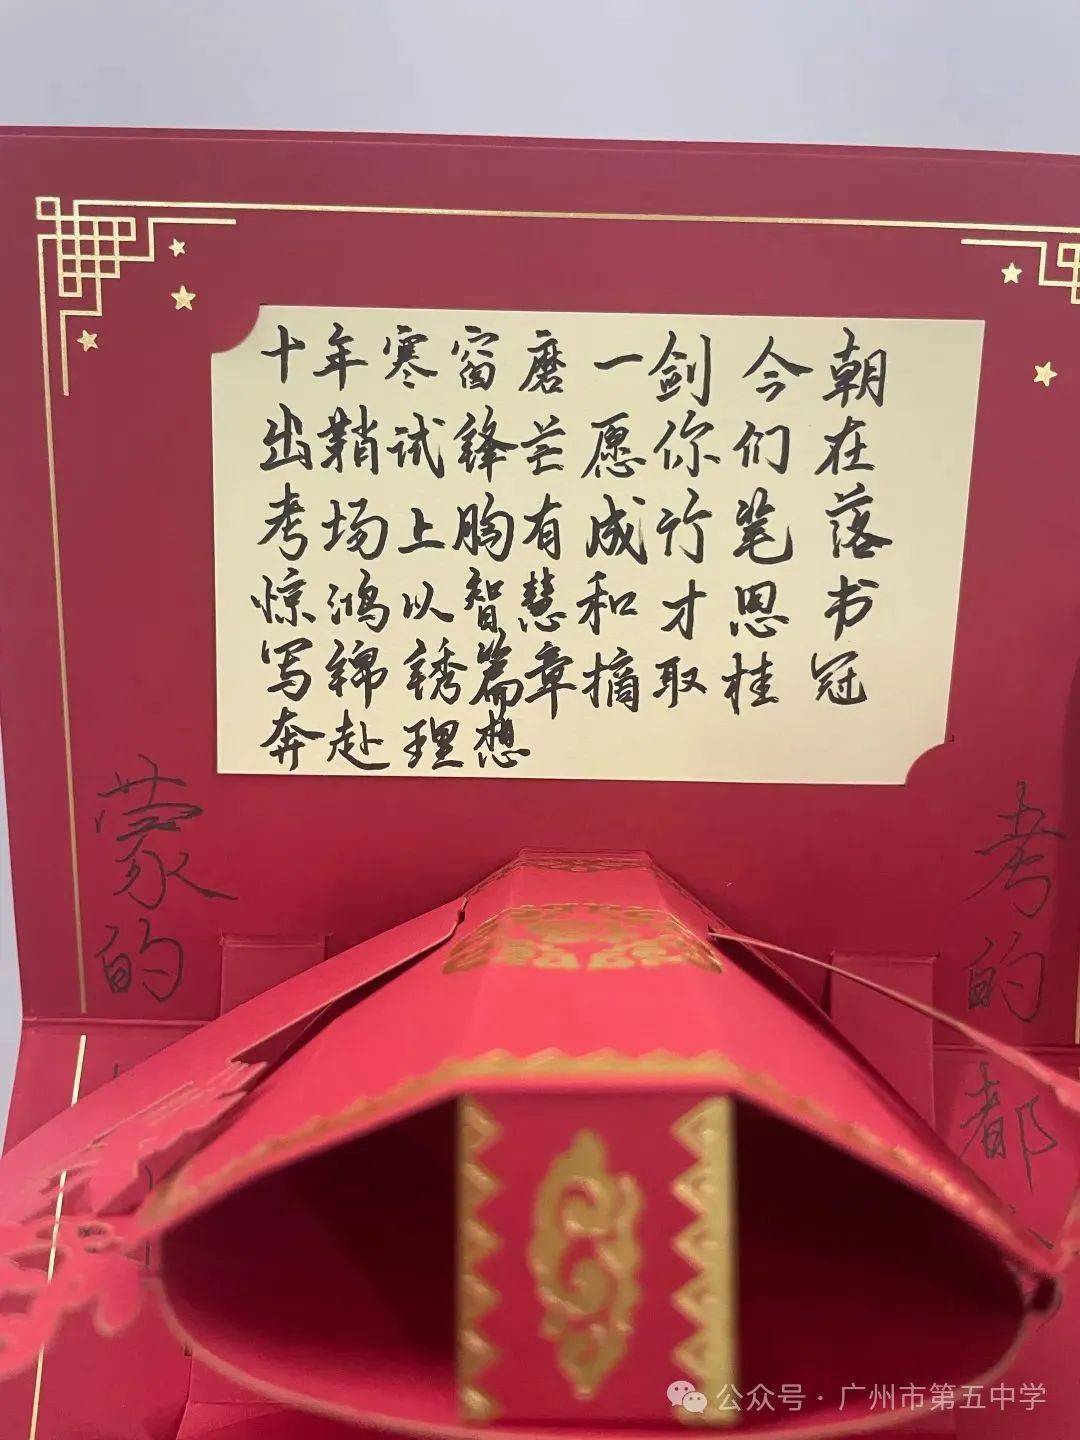 十年寒窗磨一剑今朝
出鞘试锋芒愿你们在
考场上胸有成竹笔落
惊鸿以智慧和才思书
写锦诱篇章摘取桂冠
奔赴理想
蒙的
考的都
公众号·广州市第五中学